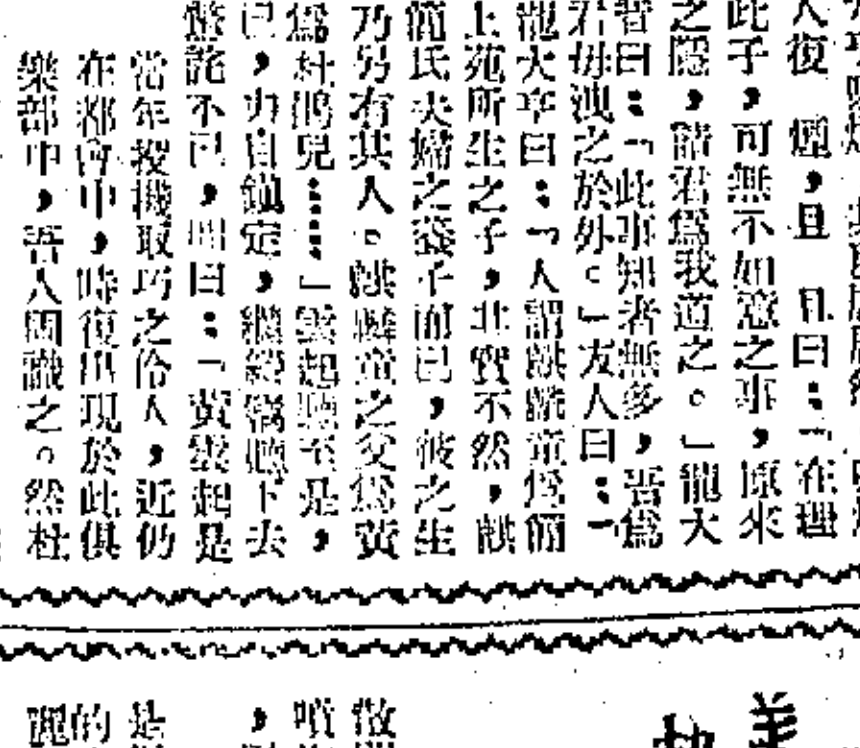 人復　煙，且　且曰：「在理
此子，可無不如意之事，原來
之隱，請君爲我道之。」龍大
者曰：「此事知者無多，吾爲
君毋洩之於外。」友人曰：「
龍大卒曰：「人謂麒麟童爲簡
上苑所生之子，其實不然，麒
簡氏夫婦之養子而已，彼之生
乃另有其人。麒麟童之父爲黃
爲杜鵑兒……」雲起聽至是，
已，力自鎮定，繼續竊聽下去
詫不已，曰：「黃雲起是
當年投機取巧之伶人，近仍
在都會中，時復出現於此俱
樂部中，吾人固識之。然杜
羊
做
噴
，
是
的
麗